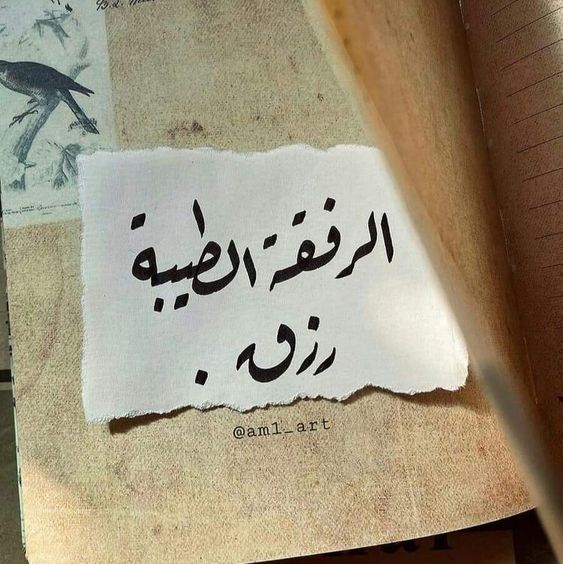 الرفقة الطيبة
رزق .
@am1_art